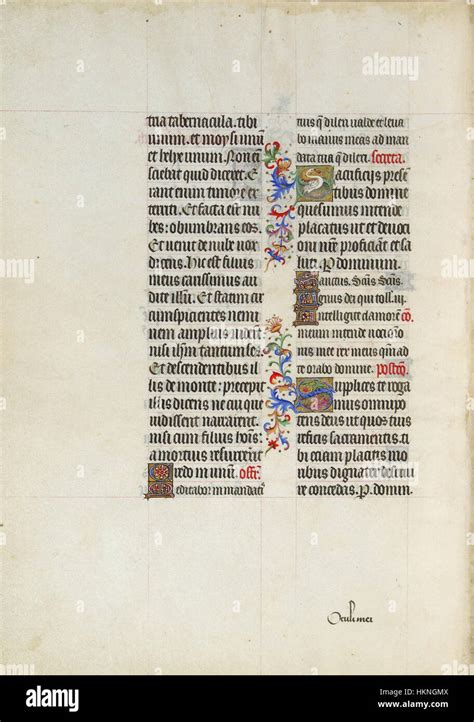 tria tabernacula. tibi
unum. et moysi unū
et helye unum. Non eī
sciebat quid diceret. E
rant enim timore ex
territi. Et facta est nu
bes: obumbrans eos.
Et uenit de nube uox
dicens. Hic est filius
meus carissimus audi
te illū. Et statim cir
cumspicientes nemi
nem amplius uiderūt
nisi ihm tantum secū
Et descendentibus il
lis de monte: precepit
illis dicens ne cui que
uidissent narrarent.
nisi cum filius hoīs:
a mortuis resurrexerit
Credo in unum. offr.
Meditabor in mandatis
tuis q̄ dilexi ualde et leua
bo manus meas ad man
data tua q̄ dilexi. secreta.
Sacrificiis presen
tibus domine
quesumus intende
placatus ut et deuoci
oni nr̄e proficiant et sa
luti. P. dominum.
Sanctus. Scūs. Scūs.
Agnus dei qui toll. iij
Intellige clamorē co.
meum intende uoci
onis mee rex meus qm̄ ad
te orabo domine. postco.
Supplices te roga
mus omnipo
tens deus ut quos tuis
reficis sacramentis. ti
bi etiam placitis mo
ribus dignanter deserui
re concedas. P. domin.
Oculi mei
alamy
alamy
Image ID: HKNGMX
www.alamy.com